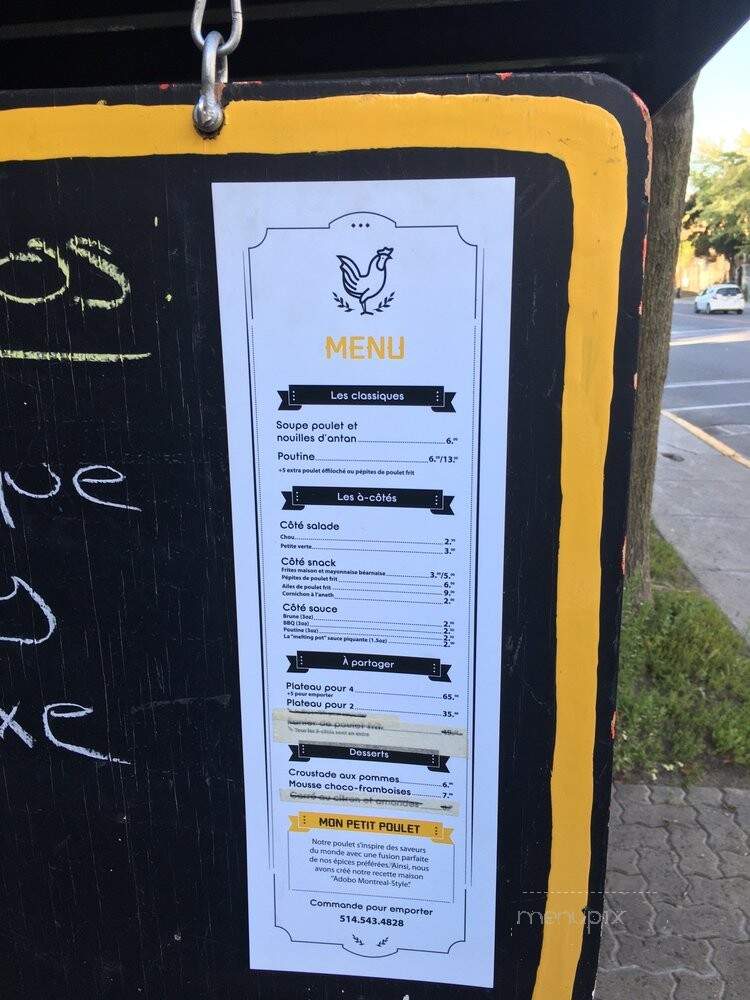 os
que
y
xe
MENU
Les classiques
Soupe poulet et
nouilles d'antan 6.⁰⁰
Poutine 6.⁰⁰/13.⁰⁰
+5 extra poulet éffiloché ou pépites de poulet frit
Les à-côtés
Côté salade
Chou 2.⁰⁰
Petite verte 3.⁰⁰
Côté snack
Frites maison et mayonnaise béarnaise 3.⁰⁰/5.⁰⁰
Pépites de poulet frit 6.⁰⁰
Ailes de poulet frit 9.⁰⁰
Cornichon à l'aneth 2.⁰⁰
Côté sauce
Brune (3oz) 2.⁰⁰
BBQ (3oz) 2.⁰⁰
Poutine (3oz) 2.⁰⁰
La "melting pot" sauce piquante (1.5oz) 2.⁰⁰
À partager
Plateau pour 4 65.⁰⁰
+5 pour emporter
Plateau pour 2 35.⁰⁰
Panier de poulet frit
Tous les à-côtés sont en extra
Desserts
Croustade aux pommes 6.⁰⁰
Mousse choco-framboises 7.⁰⁰
Carré au citron et amandes
MON PETIT POULET
Notre poulet s'inspire des saveurs
du monde avec une fusion parfaite
de nos épices préférées. Ainsi, nous
avons créé notre recette maison
"Adobo Montreal-Style".
Commande pour emporter
514.543.4828
menupix